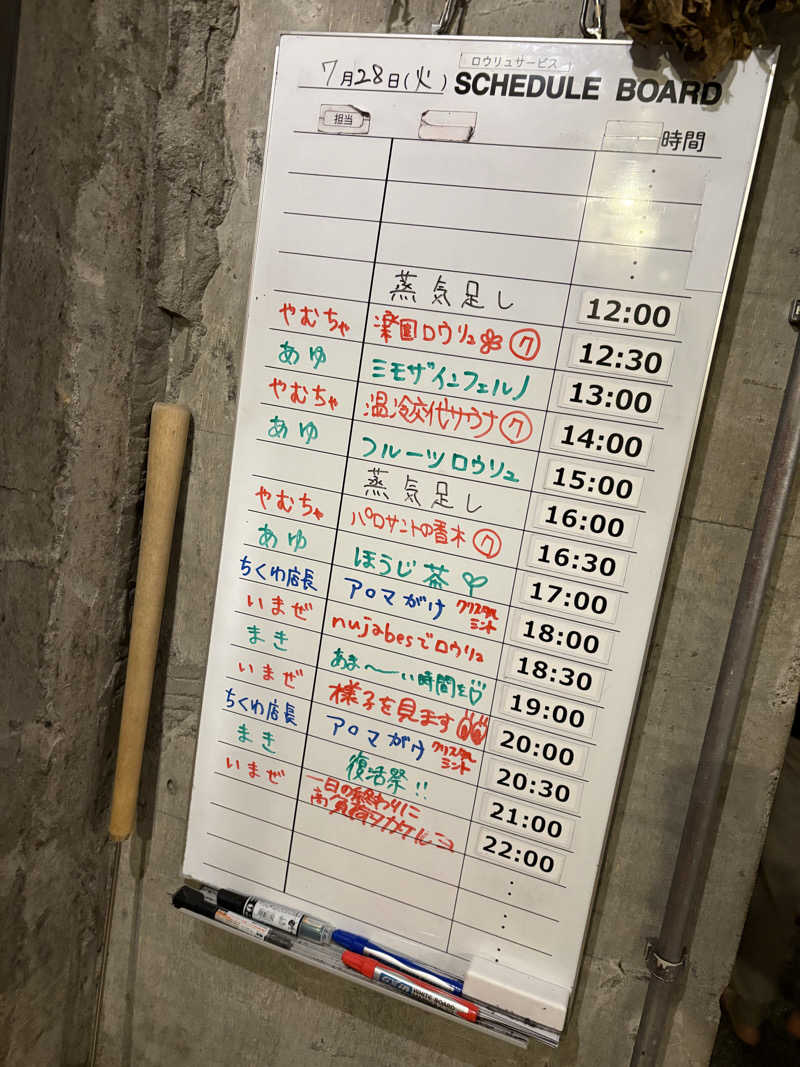 7月28日(火)
ロウリュサービス
SCHEDULE BOARD
担当
時間
蒸気足し 12:00
やむちゃ 楽園ロウリュ ㋗ 12:30
あゆ ミモザインフェルノ 13:00
やむちゃ 温冷交代サウナ ㋗ 14:00
あゆ フルーツロウリュ 15:00
蒸気足し 16:00
やむちゃ パロサントの香木 ㋗ 16:30
あゆ ほうじ茶 17:00
ちくわ店長 アロマがけ クリスタルミント 18:00
いまぜ nujabesでロウリュ 18:30
まき あま〜い時間を 19:00
いまぜ 様子を見ます 20:00
ちくわ店長 アロマがけ クリスタルミント 20:30
まき 復活祭!! 21:00
いまぜ 一日の終わりに 22:00
WHITE BOARD